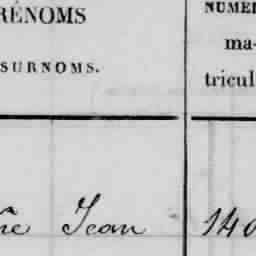 RÉNOMS
SURNOMS.
NUMÉ
ma-
tricul
Jean
140